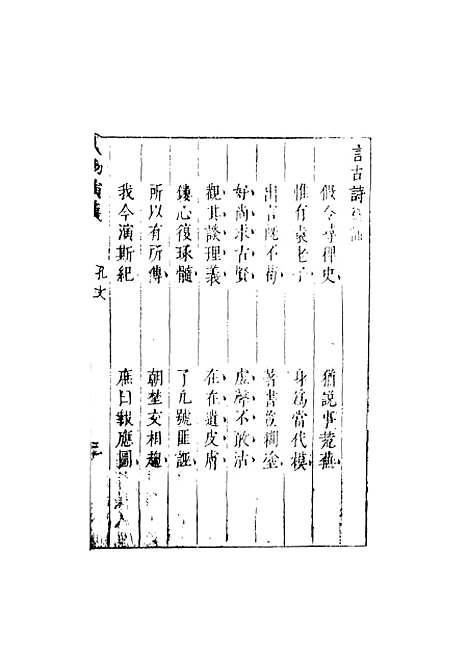 言古詩
假令尋稗史 猶說事荒蕪
惟有袁老子 身為當代模
出言既不苟 著書豈糊塗
好尚求古賢 虛聲不敢沽
觀其談理義 在在遺皮膚
鏤心復琢髓 了凡號匪誣
所以有所傳 朝埜交相趨
我今演斯紀 應圖
孔文